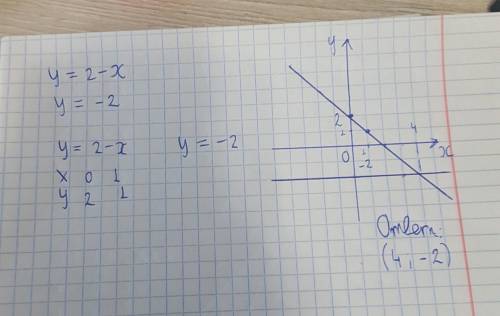 y = 2 - x
y = -2
y = 2 - x
y = -2
x 0 1
y 2 1
y
2
1
4
0
1
x
-2
Ответ:
(4, -2)